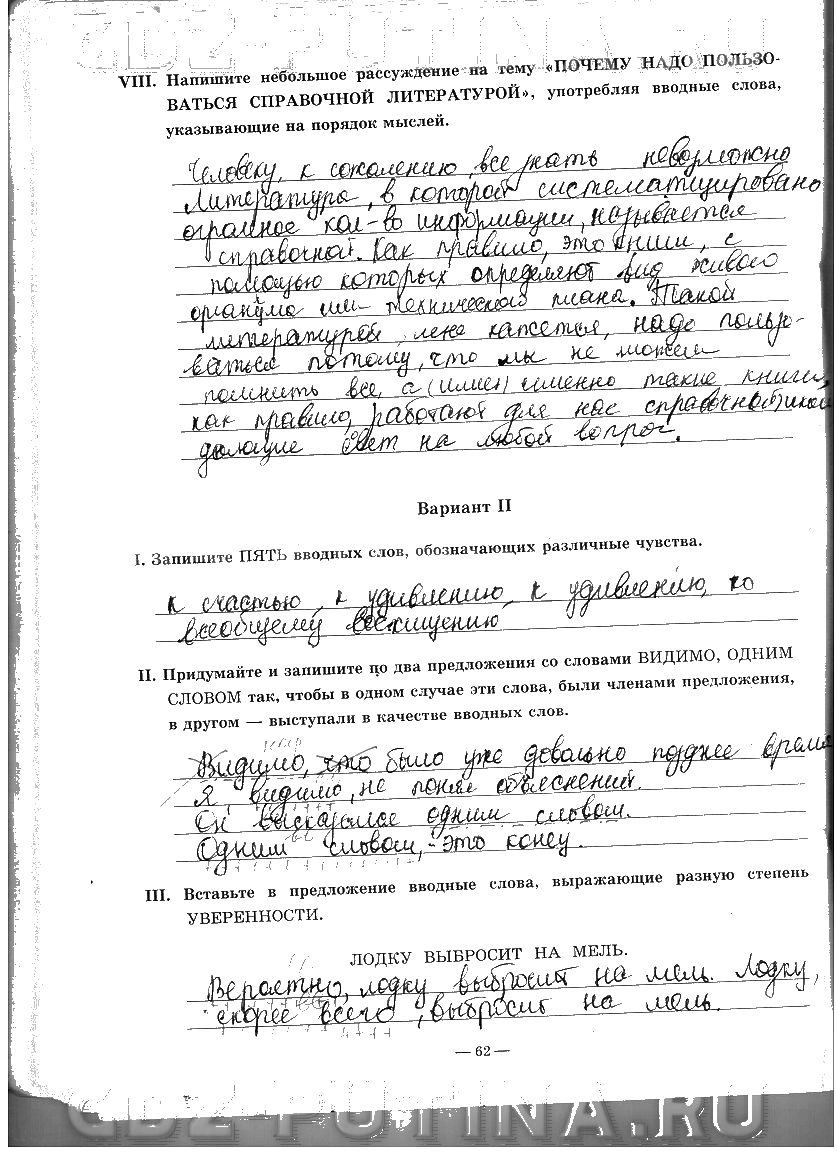 GDZ-PUTINA.RU
VIII. Напишите небольшое рассуждение на тему «ПОЧЕМУ НАДО ПОЛЬЗО-
ВАТЬСЯ СПРАВОЧНОЙ ЛИТЕРАТУРОЙ», употребляя вводные слова,
указывающие на порядок мыслей.
Человеку, к сожалению, все знать невозможно
Литература, в которой систематизировано
огромное кол-во информации, называется
справочной. Как правило, это книги, с
помощью которых определяют вид живого
организма или технического плана. Такой
литературой, мне кажется, надо пользо-
ваться потому, что мы не можем
помнить все, а (имен) именно такие книги,
как правило, работают для нас
дающие ответ на любой вопрос.
Вариант II
I. Запишите ПЯТЬ вводных слов, обозначающих различные чувства.
к счастью, к удивлению, к удивлению, ко
всеобщему восхищению
II. Придумайте и запишите по два предложения со словами ВИДИМО, ОДНИМ
СЛОВОМ так, чтобы в одном случае эти слова, были членами предложения,
в другом — выступали в качестве вводных слов.
Видимо, что было уже довольно позднее время
Я, видимо, не понял объяснений.
Он высказался одним словом.
Одним словом, - это конец.
III. Вставьте в предложение вводные слова, выражающие разную степень
УВЕРЕННОСТИ.
ЛОДКУ ВЫБРОСИТ НА МЕЛЬ.
Вероятно, лодку выбросит на мель. Лодку,
скорее всего, выбросит на мель.
— 62 —
GDZ-PUTINA.RU